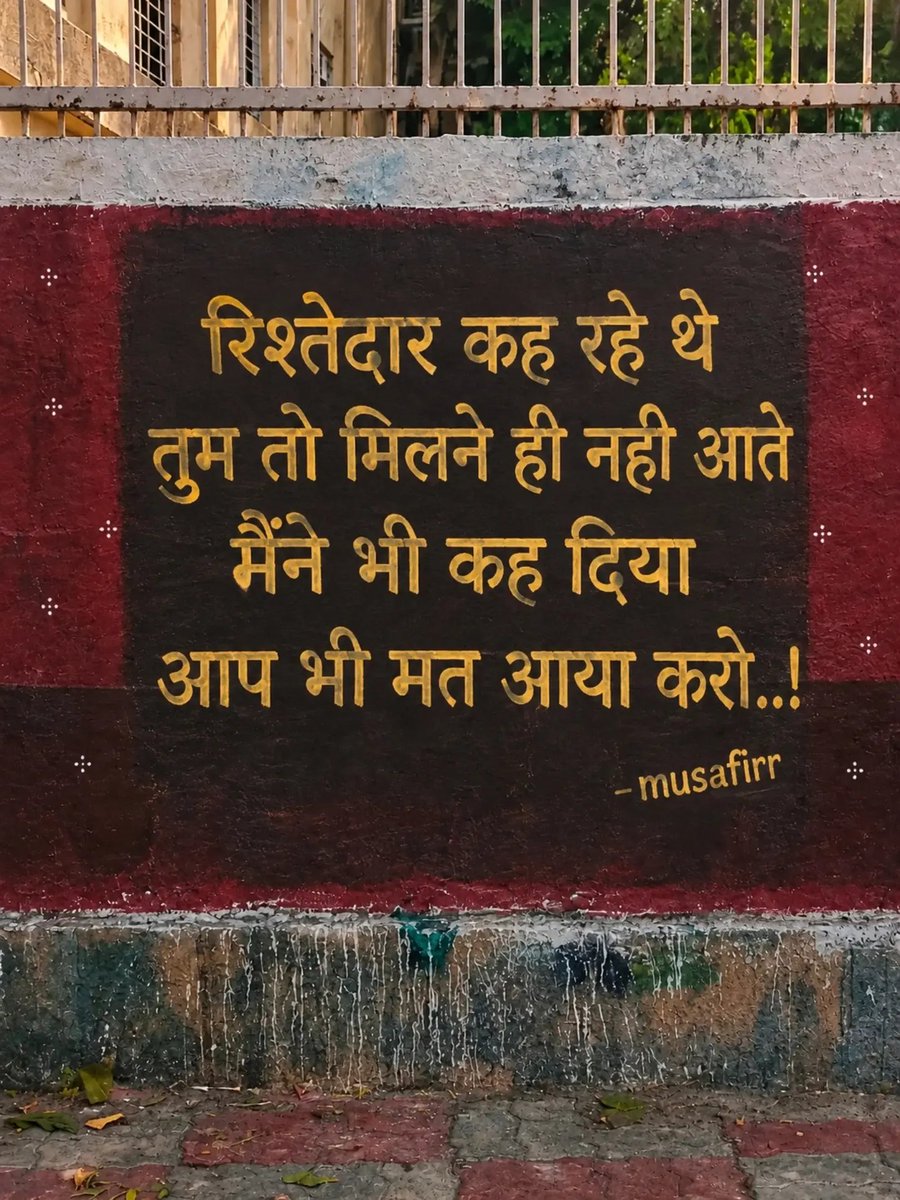 रिश्तेदार कह रहे थे
तुम तो मिलने ही नही आते
मैंने भी कह दिया
आप भी मत आया करो..!
- musafirr